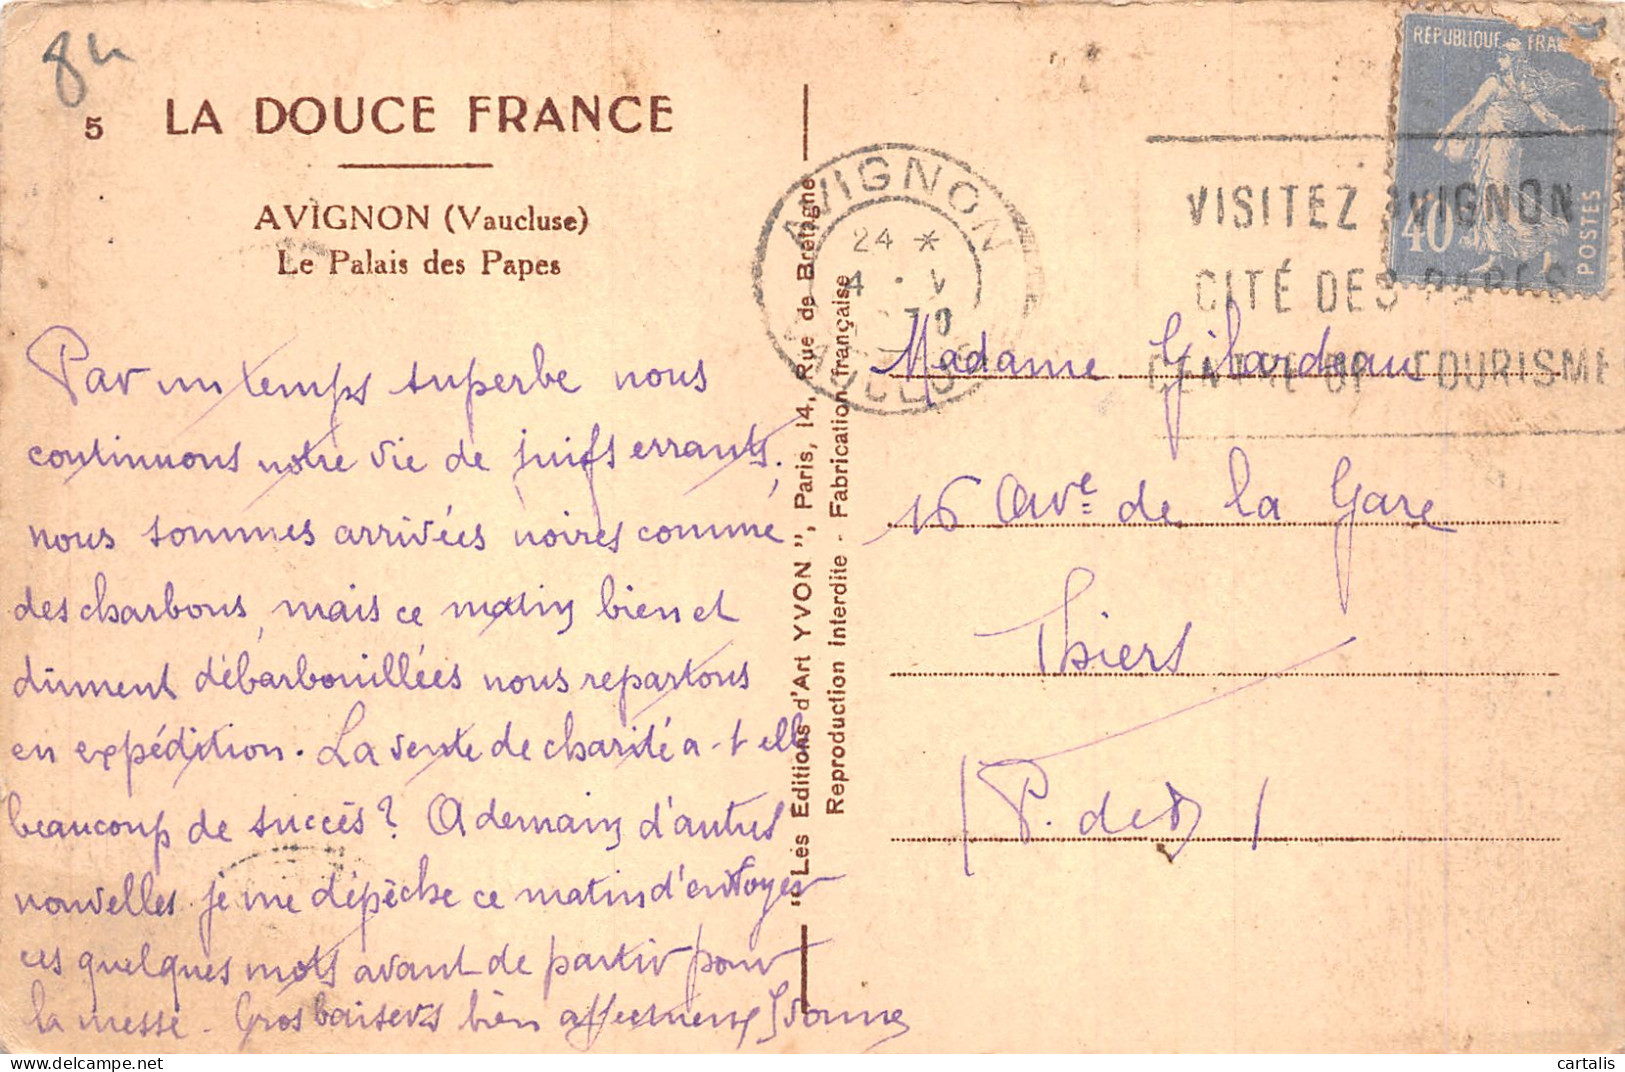 84
5 LA DOUCE FRANCE
AVIGNON (Vaucluse)
Le Palais des Papes
Par un temps superbe nous
continuons notre vie de juifs errants.
nous sommes arrivées noires comme
des charbons, mais ce matin bien et
dûment débarbouillées nous repartons
en expédition. La vente de charité a-t-elle
beaucoup de succès? A demain d'autres
nouvelles. je me dépêche ce matin d'envoyer
ces quelques mots avant de partir pour
la messe. Gros baisers bien affectueux Yvonne
"Les Editions d'Art YVON", Paris, 14, Rue de Bretagne
Reproduction Interdite - Fabrication française
AVIGNON
24 *
4 · V
VAUCLUSE
RÉPUBLIQUE FRA
40
POSTES
VISITEZ AVIGNON
CITÉ DES PAPES
CENTRE DE TOURISME
Madame Gilardeau
16 Ave de la Gare
Thiers
(P. de D)
cartalis